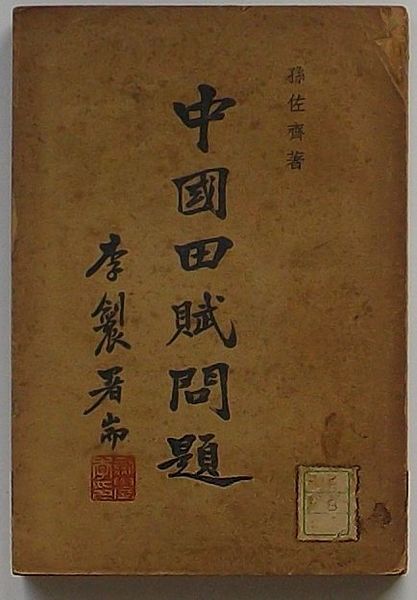 孫佐齊著
中國田賦問題
李製署耑